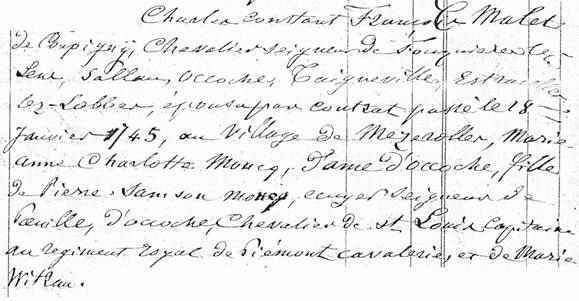 Charles constant François Le Malet
de Coupigny, Chevalier seigneur de Fouquieres les
Lens, Sallau, occoche, Taigneville, Estracelles
lez-Lobber, épousa par contrat passé le 18
Janvier 1745, au Village de Mezeroller, Marie
anne Charlotte Moucq, Dame d'occoche, fille
de Pierre-Samson moucq, ecuyer seigneur de
d'occoche, Chevalier de st Louis Capitaine
au regiment royal de Piémont cavalerie, et de Marie
Witlau.